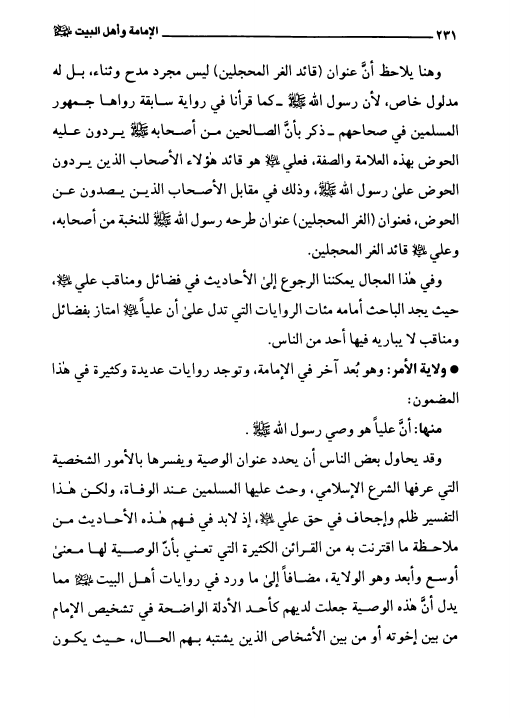 ٢٣١ الإمامة وأهل البيت ﵈
وهنا يلاحظ أنَّ عنوان (قائد الغر المحجلين) ليس مجرد مدح وثناء، بل له
مدلول خاص، لأن رسول الله ﷺ ـ كما قرأنا في رواية سابقة رواها جمهور
المسلمين في صحاحهم ـ ذكر بأنَّ الصالحين من أصحابه ﷺ يردون عليه
الحوض بهذه العلامة والصفة، فعلي ﵇ هو قائد هؤلاء الأصحاب الذين يردون
الحوض علىٰ رسول الله ﷺ، وذلك في مقابل الأصحاب الذين يصدون عن
الحوض، فعنوان (الغر المحجلين) عنوان طرحه رسول الله ﷺ للنخبة من أصحابه،
وعلي ﵇ قائد الغر المحجلين.
وفي هٰذا المجال يمكننا الرجوع إلىٰ الأحاديث في فضائل ومناقب علي ﵇،
حيث يجد الباحث أمامه مئات الروايات التي تدل علىٰ أن علياً ﵇ امتاز بفضائل
ومناقب لا يباريه فيها أحد من الناس.
● ولاية الأمر: وهو بُعد آخر في الإمامة، وتوجد روايات عديدة وكثيرة في هٰذا
المضمون:
منها: أنَّ علياً هو وصي رسول الله ﷺ .
وقد يحاول بعض الناس أن يحدد عنوان الوصية ويفسرها بالأمور الشخصية
التي عرفها الشرع الإسلامي، وحث عليها المسلمين عند الوفاة، ولكن هٰذا
التفسير ظلم وإجحاف في حق علي ﵇، إذ لابد في فهم هٰذه الأحاديث من
ملاحظة ما اقترنت به من القرائن الكثيرة التي تعني بأنّ الوصية لها معنىٰ
أوسع وأبعد وهو الولاية، مضافاً إلىٰ ما ورد في روايات أهل البيت ﵈ مما
يدل أنَّ هٰذه الوصية جعلت لديهم كأحد الأدلة الواضحة في تشخيص الإمام
من بين إخوته أو من بين الأشخاص الذين يشتبه بهم الحال، حيث يكون